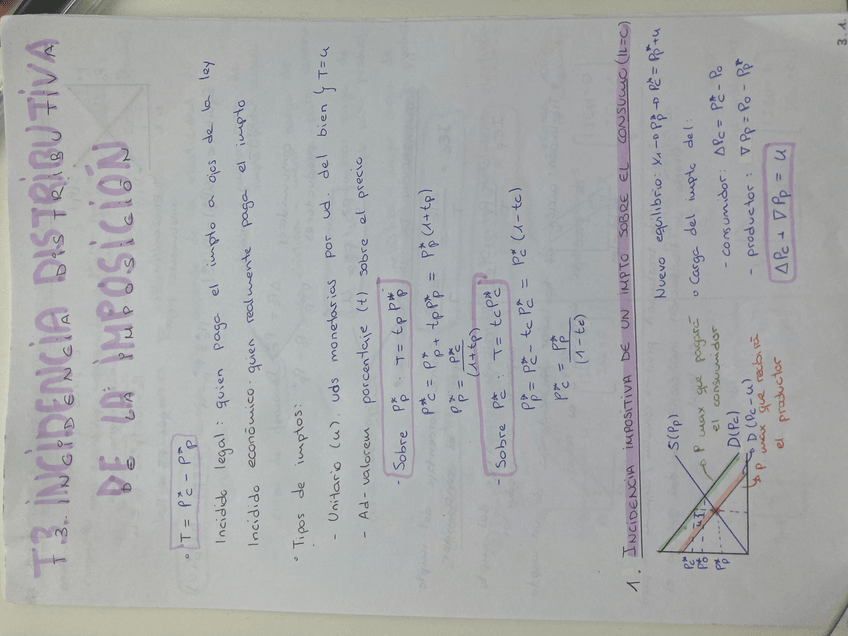 T3. INCIDENCIA DISTRIBUTIVA
DE LA IMPOSICIÓN
• T = P*c - P*p
Incidido legal: quien paga el impto a ojos de la ley
Incidido económico: quien realmente paga el impto
• Tipos de imptos:
- Unitario (u). uds monetarias por ud. del bien } T=u
- Ad-valorem porcentaje (t) sobre el precio.
- Sobre P*p : T = tp P*p
P*c = P*p + tp P*p = P*p (1+tp)
P*p = P*c / (1+tp)
- Sobre P*c : T = tc P*c
P*p = P*c - tc P*c = P*c (1-tc)
P*c = P*p / (1-tc)
1. INCIDENCIA IMPOSITIVA DE UN IMPTO SOBRE EL CONSUMO (IL=C)
S(Pp)
P max que pagará
el consumidor
D(Pc)
D(Pc-u)
P max que recibirá
el productor
P*c
P0
P*p
u
Nuevo equilibrio: X1 → P*p → P*c = P*p + u
o Carga del impto del:
- consumidor: ΔPc = P*c - P0
- productor: ∇Pp = P0 - P*p
ΔPc + ∇Pp = u
3.1.